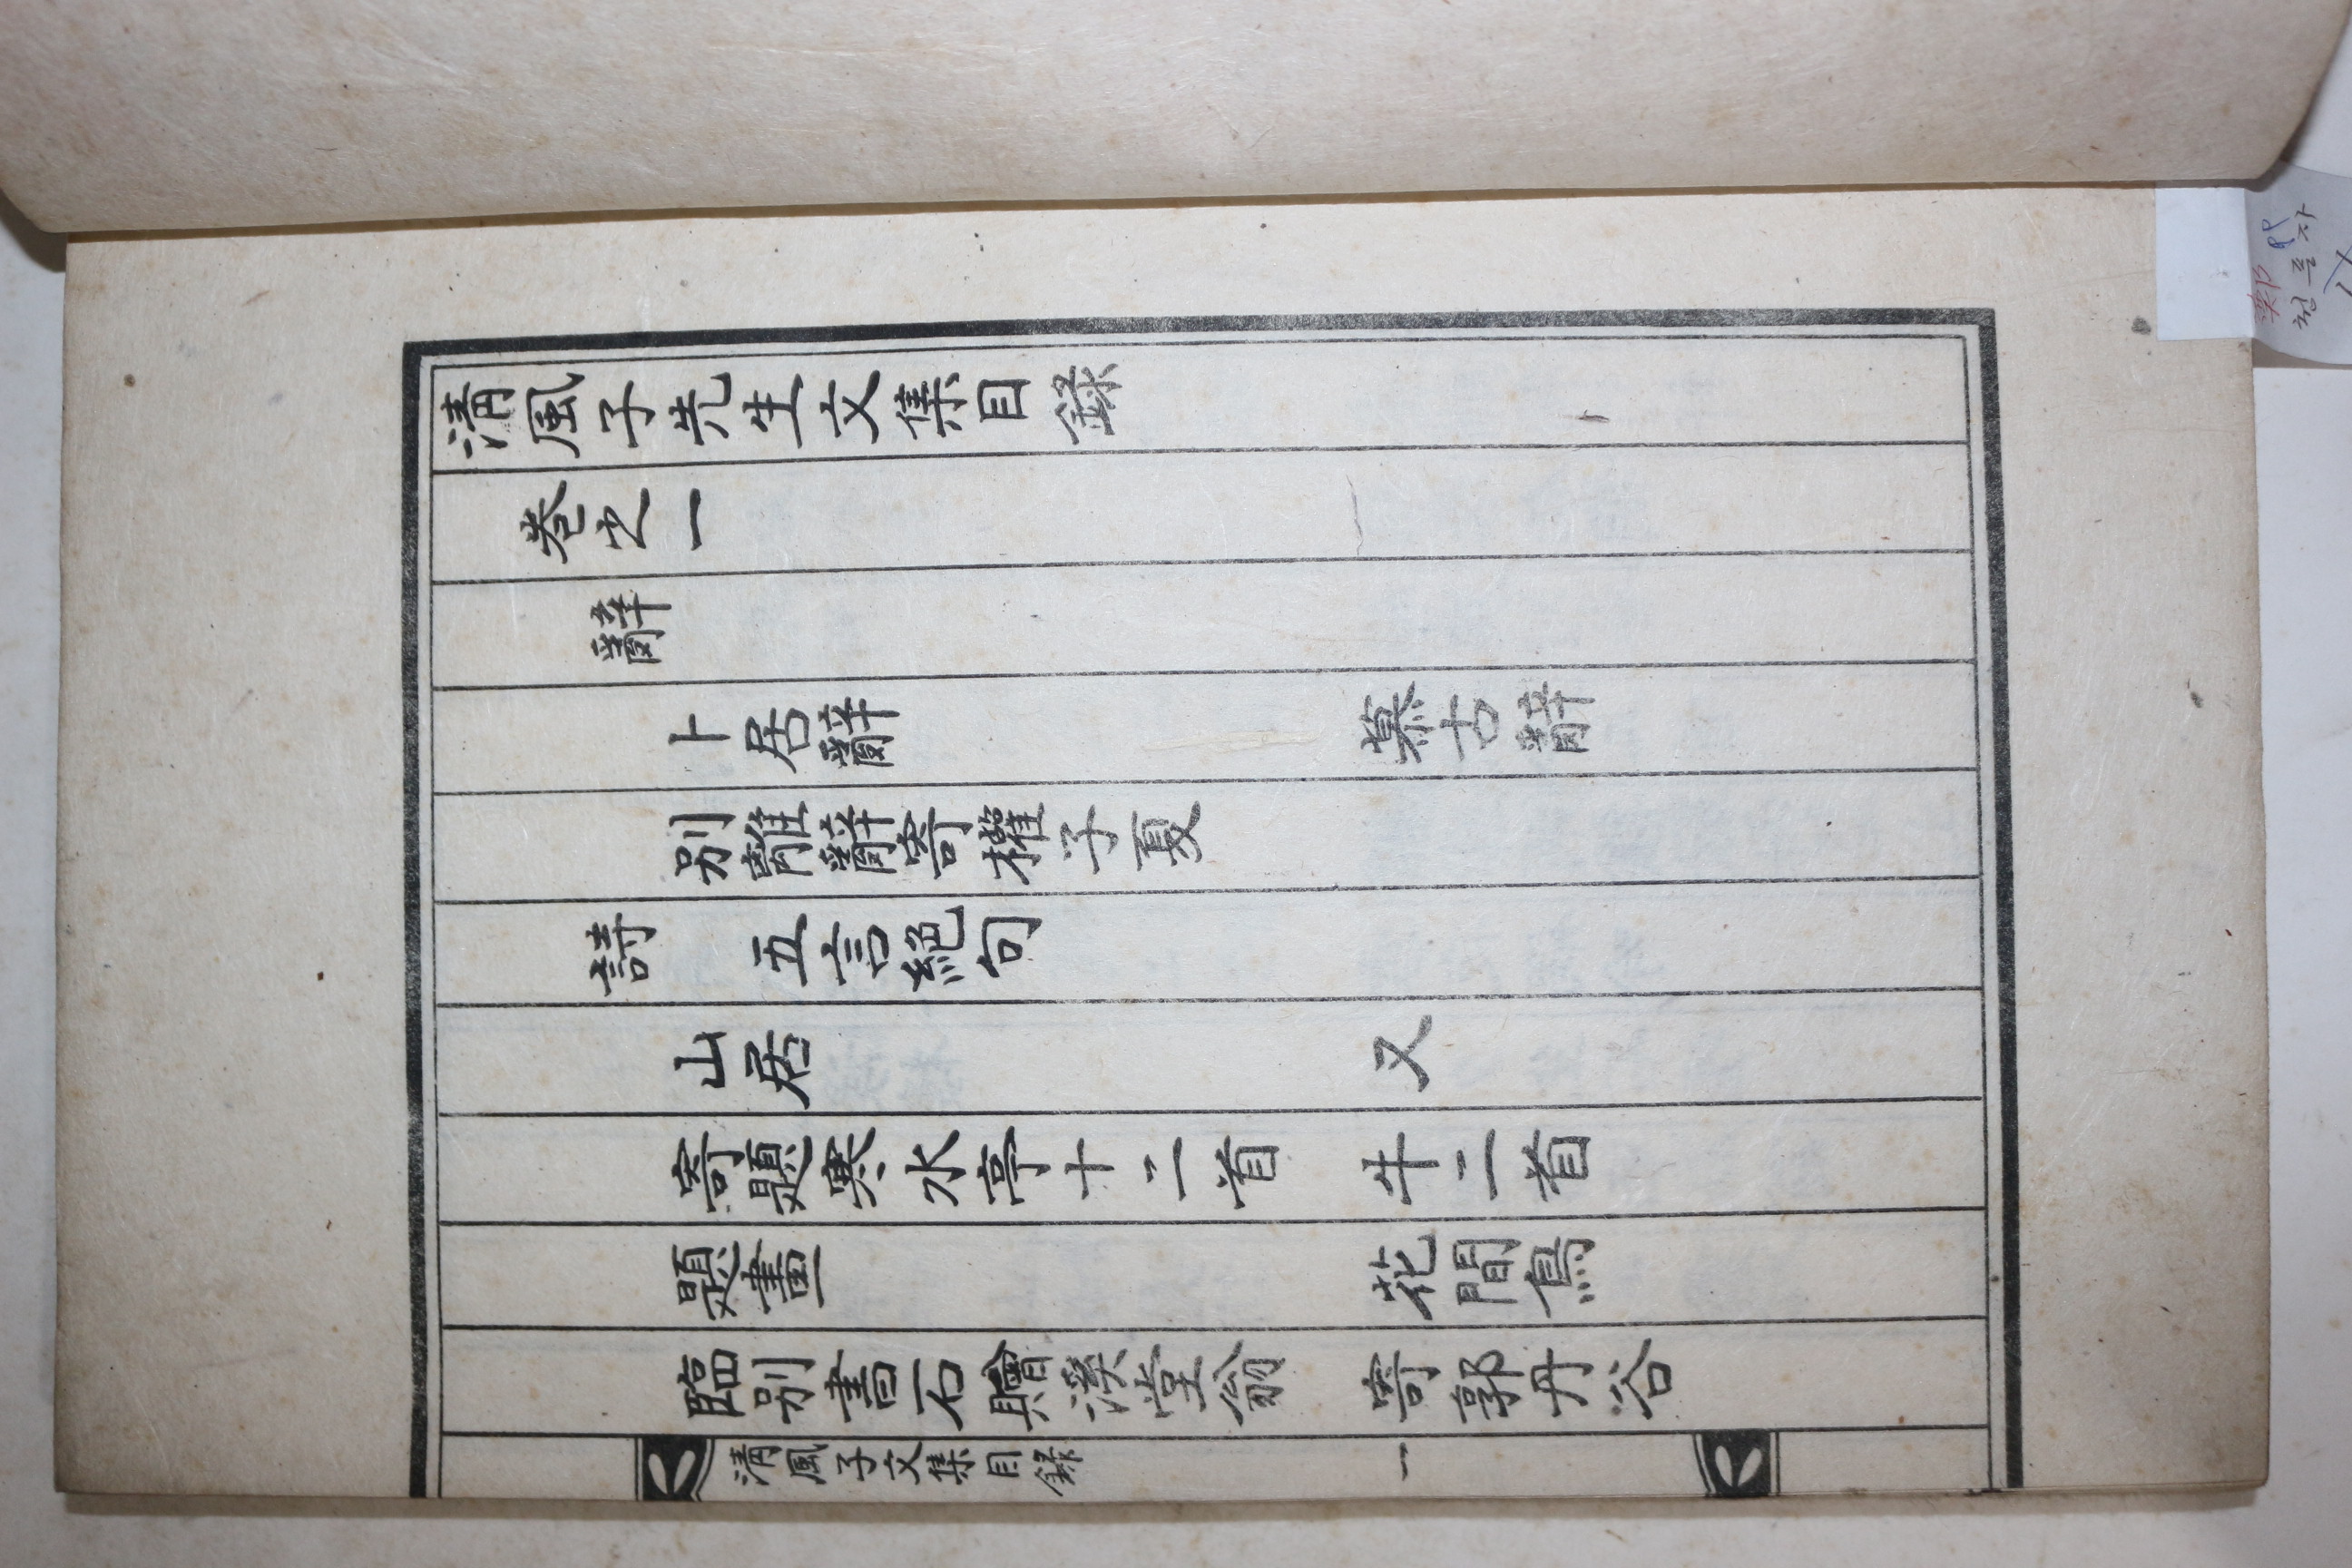 淸風子先生文集目錄
卷之一
辭
卜居辭　慕古辭
別離辭寄權子夏
詩　五言絕句
山居　又
寄題寒水亭十二首　牛二首
題畫　花間鳥
臨別書一石贈溪堂翁　寄郭丹谷
淸風子文集目錄　一
鄭 99
청풍자